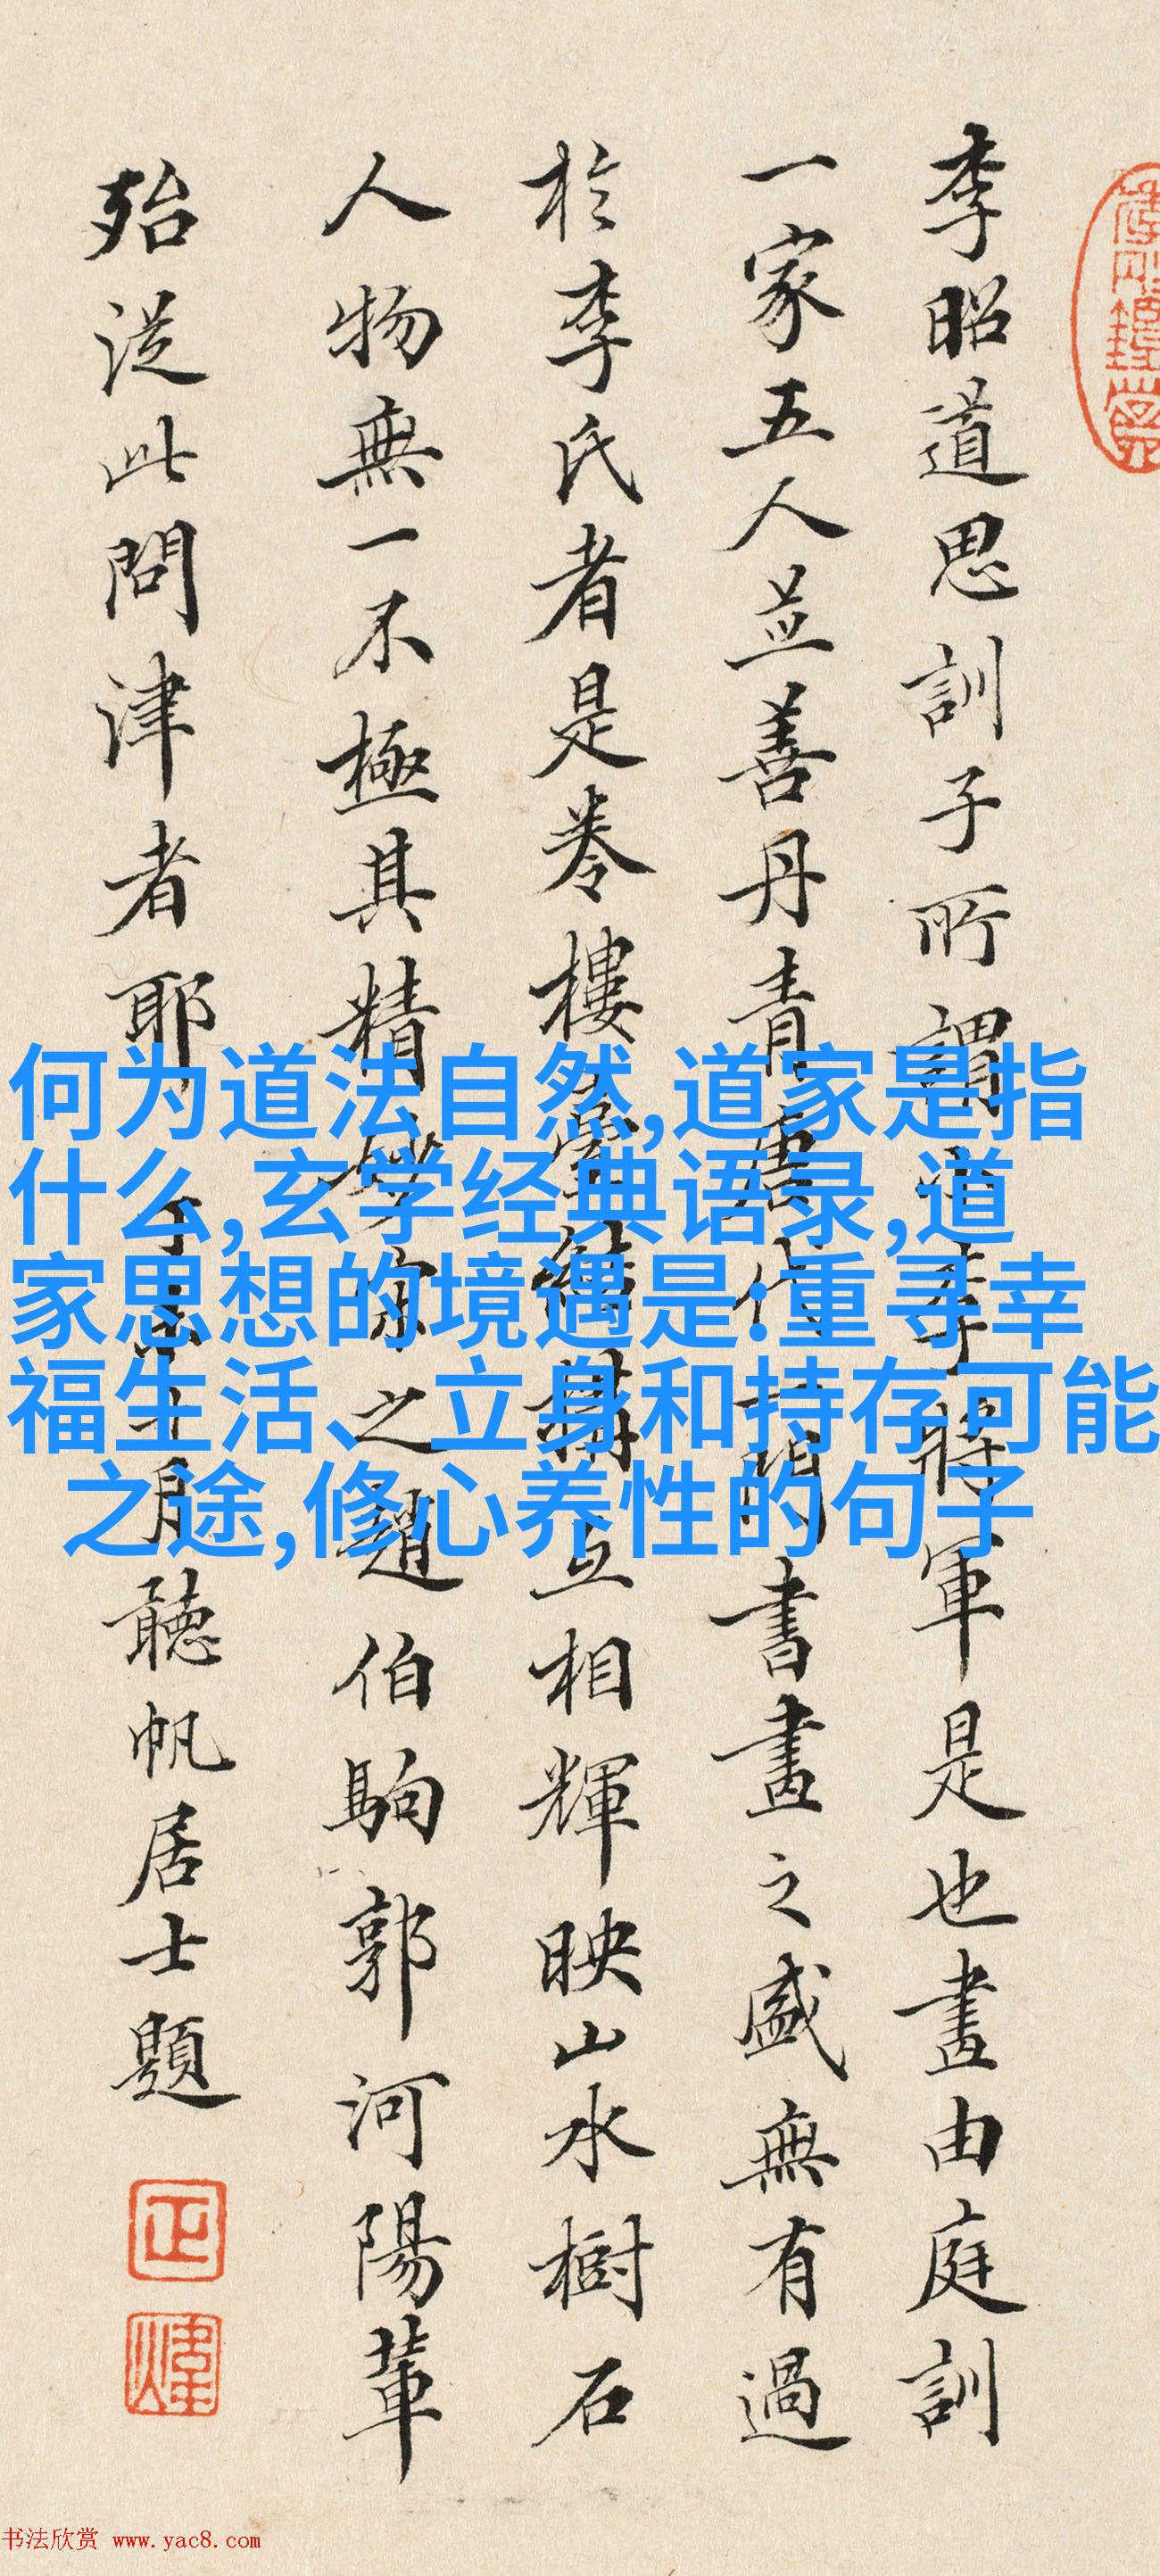 李昭道思訓子所謂小李將軍是也畫由庭訓
一家五人並善丹青唐代 書畫之盛無有過
於李氏者是卷樓臺結構互相輝映山水樹石
人物無一不極其精 家之趙伯駒郭河陽輩
殆從此問津者耶 月聽帆居士題
何为道法自然,道家是指
什么,玄学经典语录,道
家思想的境遇是:重寻幸
福生活、立身和持存可能
之途,修心养性的句子
书法欣赏 www.yac8.com